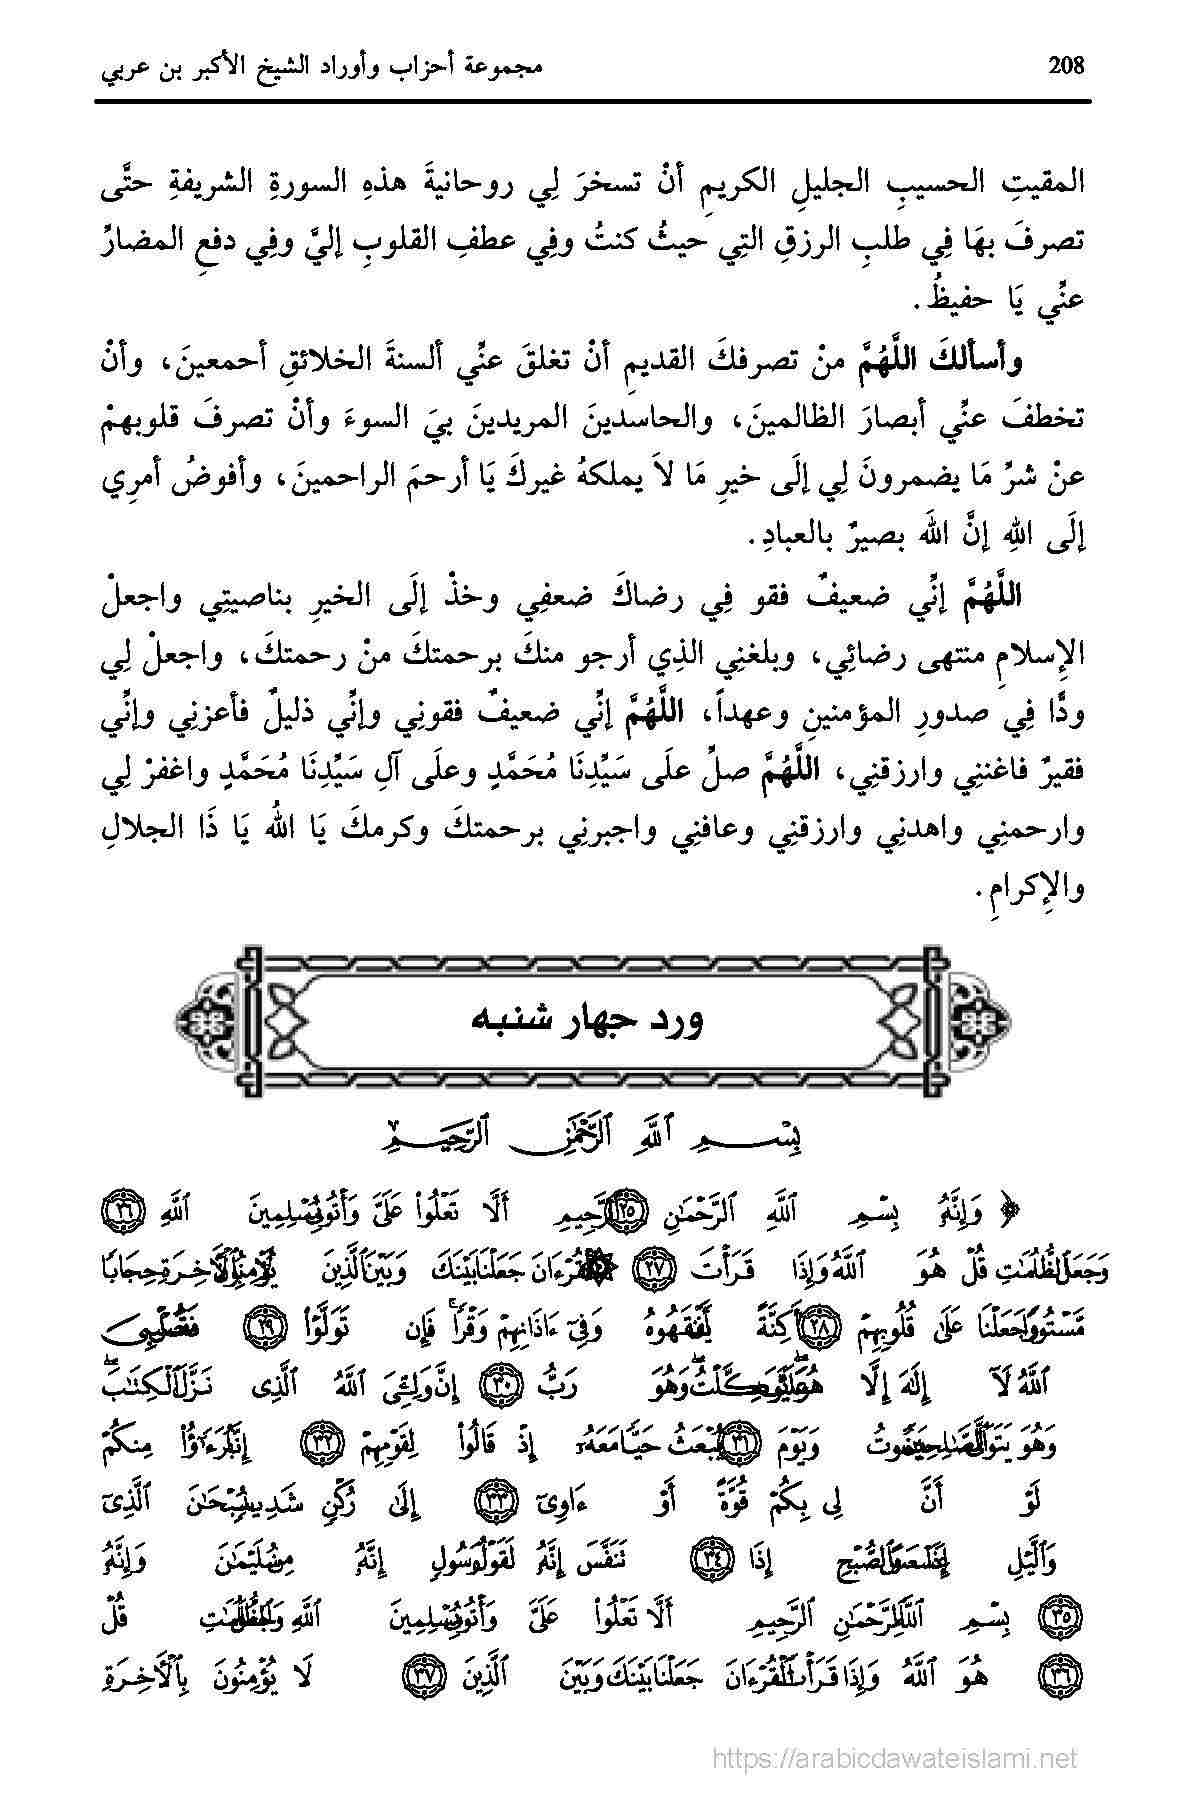 208
مجموعة أحزاب وأوراد الشيخ الأكبر بن عربي
المقيتِ الحسيبِ الجليلِ الكريمِ أنْ تسخرَ لِي روحانيةَ هذهِ السورةِ الشريفةِ حتَّى
تصرفَ بهَا فِي طلبِ الرزقِ التِي حيثُ كنتُ وفِي عطفِ القلوبِ إليَّ وفِي دفعِ المضارِّ
عنِّي يَا حفيظُ.
وأسألكَ اللَّهُمَّ منْ تصرفكَ القديمِ أنْ تغلقَ عنِّي ألسنةَ الخلائقِ أحمعينَ، وأنْ
تخطفَ عنِّي أبصارَ الظالمينَ، والحاسدينَ المريدينَ بيَ السوءَ وأنْ تصرفَ قلوبهمْ
عنْ شرِّ مَا يضمرونَ لِي إلَى خيرِ مَا لاَ يملكهُ غيركَ يَا أرحمَ الراحمينَ، وأفوضُ أمرِي
إلَى اللهِ إنَّ اللهَ بصيرٌ بالعبادِ.
اللَّهُمَّ إنِّي ضعيفٌ فقو فِي رضاكَ ضعفِي وخذْ إلَى الخيرِ بناصيتِي واجعلْ
الإِسلامِ منتهى رضائِي، وبلغنِي الذِي أرجو منكَ برحمتكَ منْ رحمتكَ، واجعلْ لِي
ودًّا فِي صدورِ المؤمنينِ وعهداً، اللَّهُمَّ إنِّي ضعيفٌ فقونِي وإنِّي ذليلٌ فأعزنِي وإنِّي
فقيرٌ فاغننِي وارزقنِي، اللَّهُمَّ صلِّ علَى سَيِّدِنَا مُحَمَّدٍ وعلَى آلِ سَيِّدِنَا مُحَمَّدٍ واغفرْ لِي
وارحمنِي واهدنِي وارزقنِي وعافنِي واجبرنِي برحمتكَ وكرمكَ يَا اللهُ يَا ذَا الجلالِ
والإِكرامِ.
ورد جهار شنبه
بِسْمِ ٱللَّهِ ٱلرَّحْمَٰنِ ٱلرَّحِيمِ
﴿ وَإِنَّهُۥ بِسْمِ ٱللَّهِ ٱلرَّحْمَٰنِ ٱلرَّحِيمِ ٢٥ أَلَّا تَعْلُوا۟ عَلَىَّ وَأْتُونِى مُسْلِمِينَ ٱللَّهِ ٢٦
وَجَعَلَ ٱلظُّلُمَٰتِ قُلْ هُوَ ٱللَّهُ وَإِذَا قَرَأْتَ ٢٧ ٱلْقُرْءَانَ جَعَلْنَا بَيْنَكَ وَبَيْنَ ٱلَّذِينَ لَا يُؤْمِنُونَ بِٱلْـَٔاخِرَةِ حِجَابًا
مَّسْتُورًا وَجَعَلْنَا عَلَىٰ قُلُوبِهِمْ ٢٨ أَكِنَّةً يَفْقَهُوهُ وَفِىٓ ءَاذَانِهِمْ وَقْرًا ۚ فَإِن تَوَلَّوْا۟ ٢٩ فَقُلْ حَسْبِىَ
ٱللَّهُ لَآ إِلَٰهَ إِلَّا هُوَ ۖ عَلَيْهِ تَوَكَّلْتُ ۖ وَهُوَ رَبُّ ٣٠ إِنَّ وَلِـِّۧىَ ٱللَّهُ ٱلَّذِى نَزَّلَ ٱلْكِتَٰبَ ۖ
وَهُوَ يَتَوَلَّى ٱلصَّٰلِحِينَ يَمُوتُ وَيَوْمَ ٣١ يُبْعَثُ حَيًّا مَعَهُۥٓ إِذْ قَالُوا۟ لِقَوْمِهِمْ ٣٢ إِنَّا بُرَءَٰٓؤُا۟ مِنكُمْ
لَوْ أَنَّ لِى بِكُمْ قُوَّةً أَوْ ءَاوِىٓ ٣٣ إِلَىٰ رُكْنٍ شَدِيدٍ سُبْحَٰنَ ٱلَّذِىٓ
وَٱلَّيْلِ إِذَا عَسْعَسَ وَٱلصُّبْحِ إِذَا ٣٤ تَنَفَّسَ إِنَّهُۥ لَقَوْلُ رَسُولٍ إِنَّهُۥ مِن سُلَيْمَٰنَ وَإِنَّهُۥ
٣٥ بِسْمِ ٱللَّهِ ٱلرَّحْمَٰنِ ٱلرَّحِيمِ أَلَّا تَعْلُوا۟ عَلَىَّ وَأْتُونِى مُسْلِمِينَ ٱللَّهِ وَجَعَلَ ٱلظُّلُمَٰتِ قُلْ
٣٦ هُوَ ٱللَّهُ وَإِذَا قَرَأْتَ ٱلْقُرْءَانَ جَعَلْنَا بَيْنَكَ وَبَيْنَ ٱلَّذِينَ ٣٧ لَا يُؤْمِنُونَ بِٱلْـَٔاخِرَةِ
https://arabicdawateislami.net